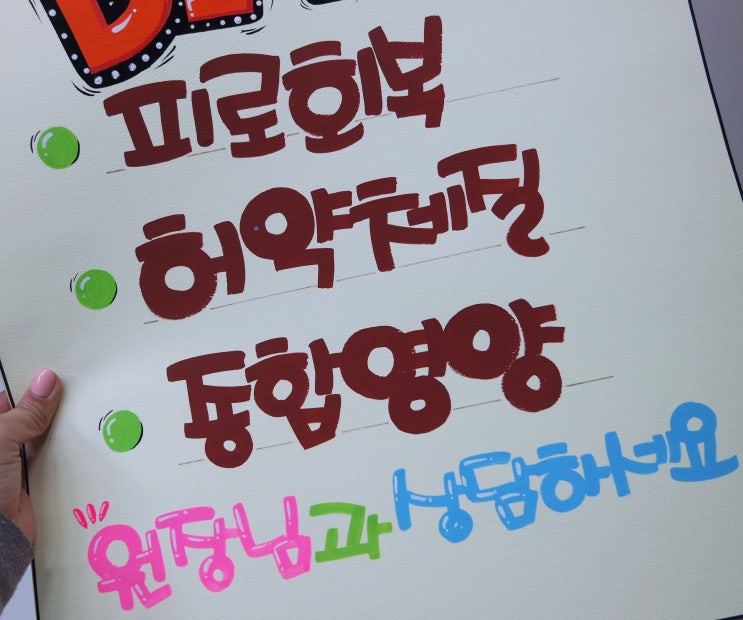 피로회복
허약체질
종합영양
원장님과 상담하세요